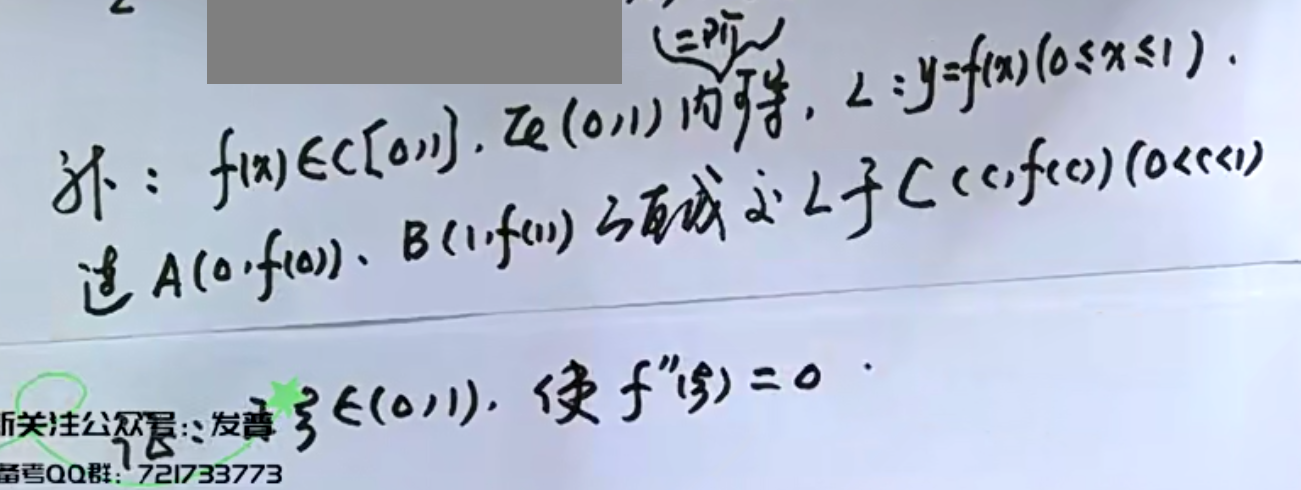 (二阶)
补: f(x)∈C[0,1], 在(0,1)内可导, L:y=f(x)(0≤x≤1).
过A(0,f(0))、B(1,f(1))的直线交L于C(c,f(c))(0<c<1)
证: ∃ξ∈(0,1), 使f″(ξ)=0.
新关注公众号:发普
备考QQ群:721733773